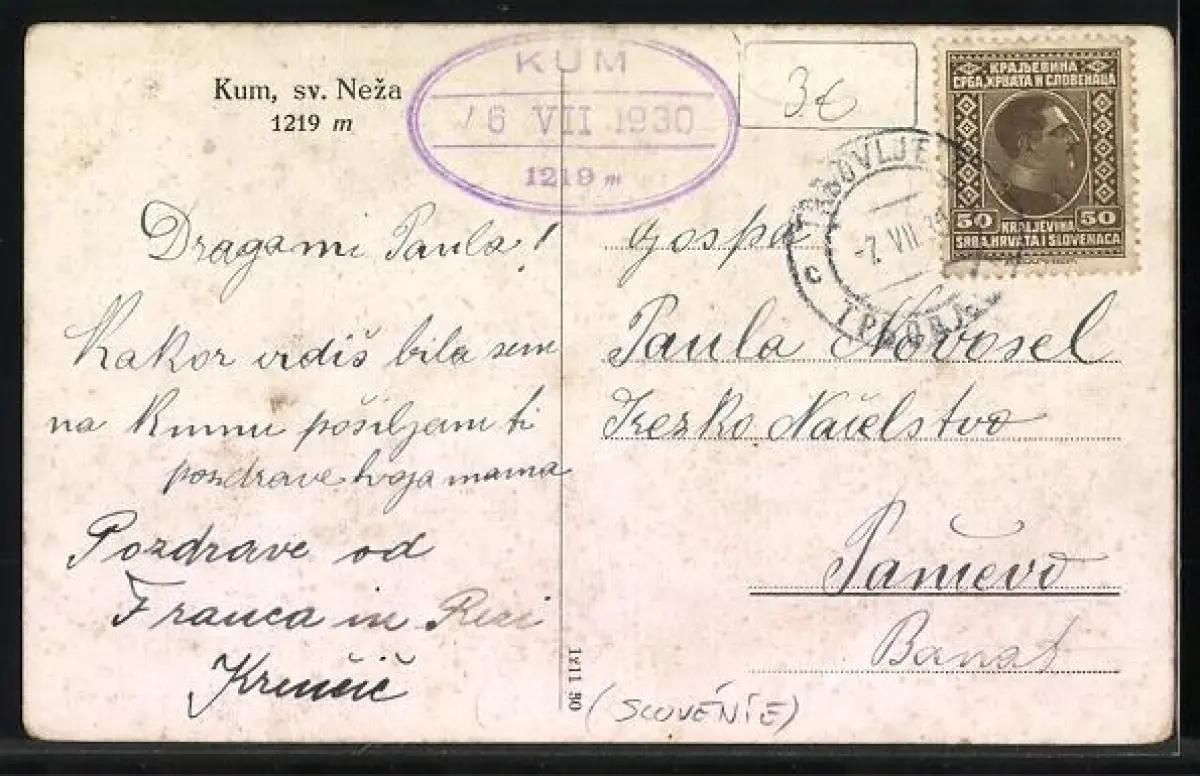 Kum, sv. Neža
1219 m
KUM
6 VII 1930
1219 m
3€
КРАЉЕВИНА
СРБА, ХРВАТА И СЛОВЕНАЦА
50 KRALJEVINA 50
SRBA, HRVATA I SLOVENACA
TRBOVLJE
-7. VII 30
C
Dragami Paula!
Kakor vidiš bila sem
na Kumu pošiljam ti
pozdrave tvoja mama
Pozdrave od
Franca in Rezi
Gospa
Paula Novosel
Srezko Načelstvo
Pančevo
Banat
(SLOVÉNIE)